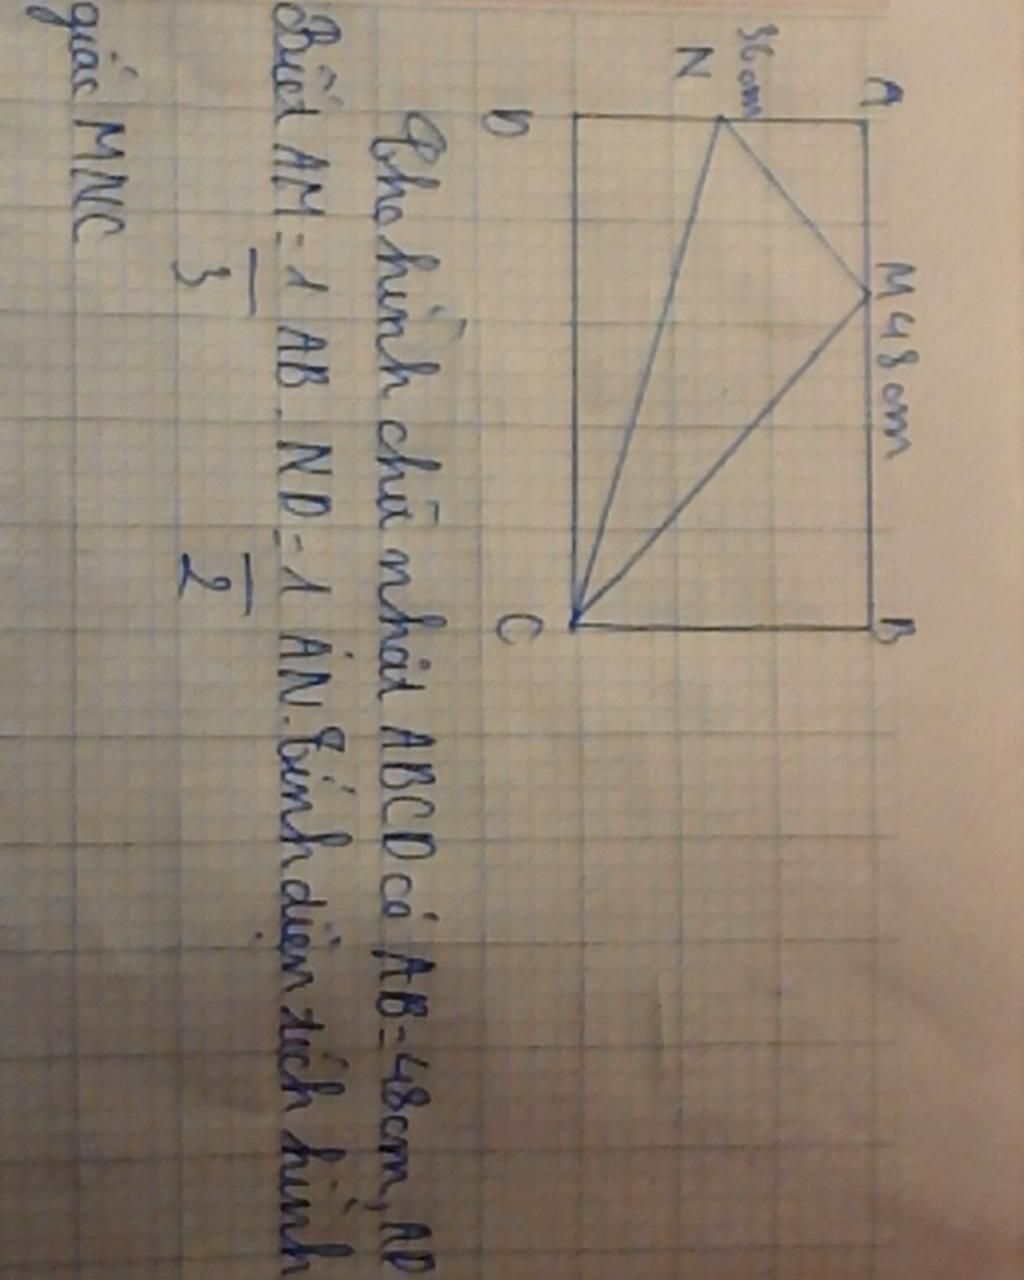 A M 48cm B
36cm
N
D C
Cho hình chữ nhật ABCD có AB=48cm, AD
Biết AM=1/3 AB. ND=1/2 AN. Tính diện tích hình
giác MNC